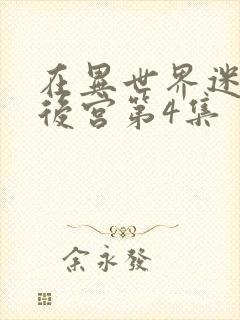 在異世界迷
後宮第4集
余永發